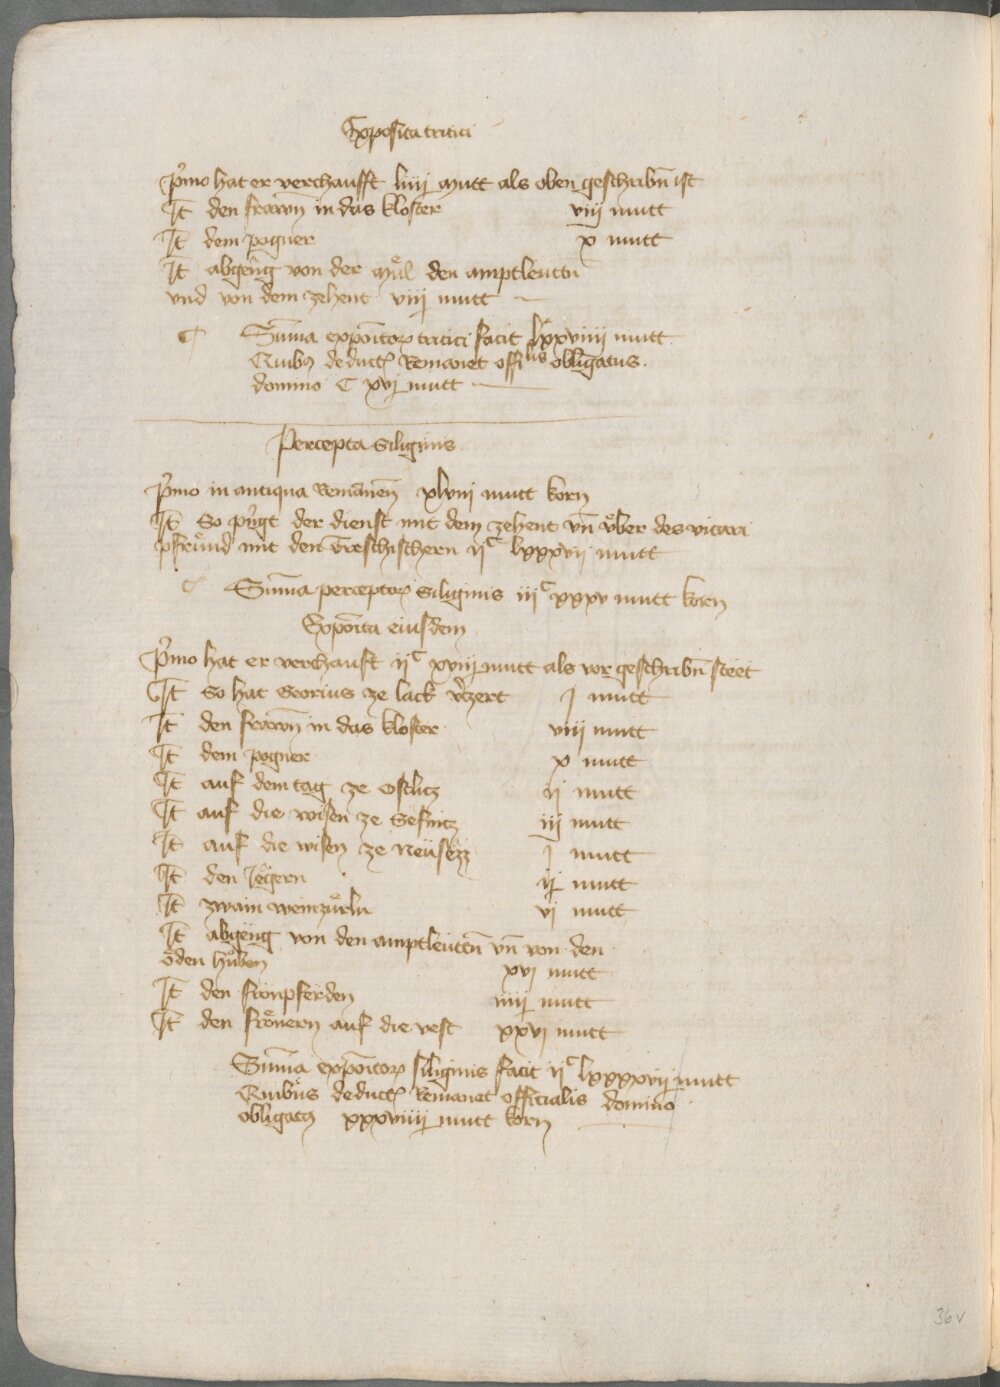 Exposita tritici
Pͥmo hat er verchaufft liiij mutt als oben geschribn̄ ist
It̄ den frawn̄ in das kloster viij mutt
It̄ dem pogner x mutt
It̄ abgeng von der muͤl den amptleuttn̄
vnd von dem zehent viij mutt
Sum̄a expōitoꝝ tritici facit lxxviiij mutt
Quibꝰ deductꝭ Remanet offiˡⁱˢ obligatus
domino C xvj mutt
Percepta Siliginis
Pͥmo in antiqua Remanen̄ xlviij mutt korn
It̄ So pͥngt der dienst mit dem zehent vn̄ vͤber des vicari
pfruͤnd mit den Dreschischern ijᶜ lxxxvij mutt
Sum̄a perceptoꝝ Siliginis iijᶜ xxxv mutt korn
Expōita eiusdem
Pͥmo hat er verchauft ijᶜ xviij mutt als vor geschribn̄ steet
It̄ So hat Georius ze lack vͤzert j mutt
It̄ den frawn̄ in das kloster viij mutt
It̄ dem pogner x mutt
It̄ auf dem tag ze Ostlitz ij mutt
It̄ auf die wisen ze Sefnitz iij mutt
It̄ auf die wisen ze Neusezz j mutt
It̄ den Jegern ij mutt
It̄ zwain weinzuͤrln vj mutt
It̄ abgeng von den amptleuttn̄ vn̄ von den
oͤden huͤben xvj mutt
It̄ den fronpferden iiij mutt
It̄ den froͤnern auf die vest xxvj mutt
Sum̄a expōitoꝝ siliginis facit ijᶜ lxxxxvij mutt
Quibus deductꝭ Remanet officialis domino
obligatꝰ xxxviiij mutt korn
36v